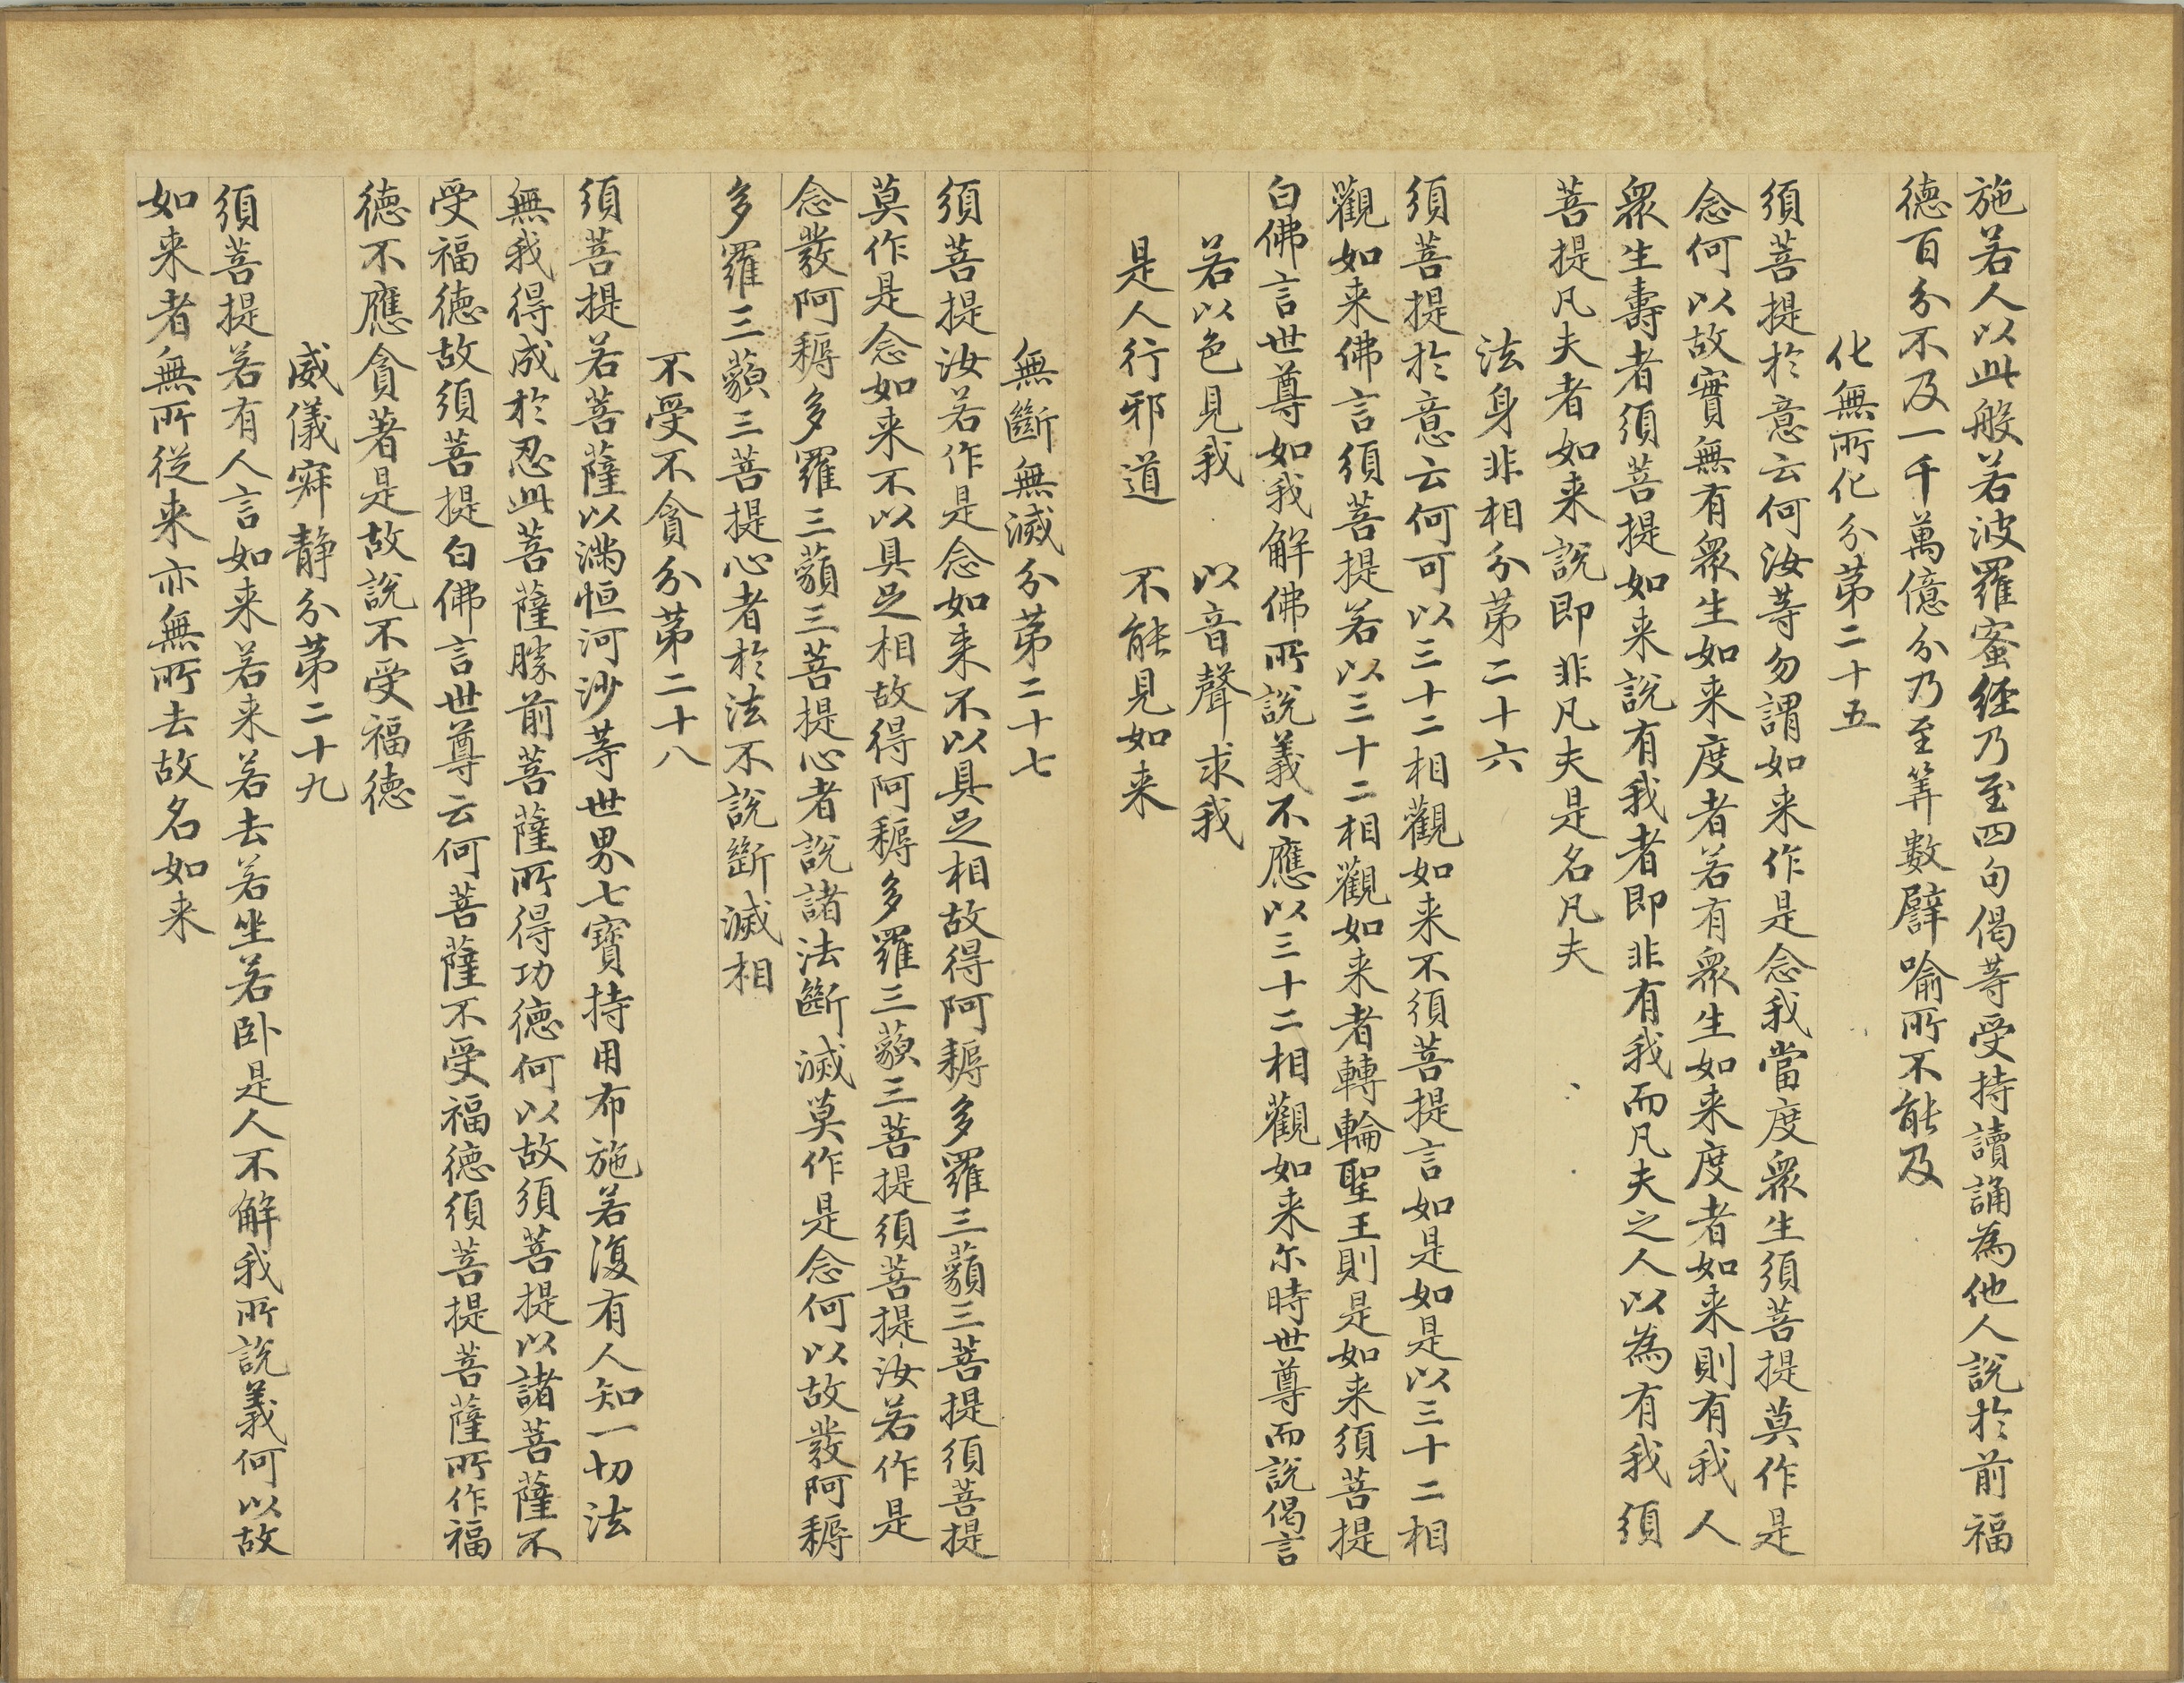 施若人以此般若波羅蜜經乃至四句偈等受持讀誦為他人說於前福
德百分不及一千萬億分乃至筭數譬喻所不能及
化無所化分第二十五
須菩提於意云何汝等勿謂如来作是念我當度眾生須菩提莫作是
念何以故實無有眾生如来度者若有眾生如来度者如来則有我人
眾生壽者須菩提如来說有我者即非有我而凡夫之人以為有我須
菩提凡夫者如来說即非凡夫是名凡夫
法身非相分第二十六
須菩提於意云何可以三十二相觀如来不須菩提言如是如是以三十二相
觀如来佛言須菩提若以三十二相觀如来者轉輪聖王則是如来須菩提
白佛言世尊如我解佛所說義不應以三十二相觀如来尔時世尊而說偈言
若以色見我 以音聲求我
是人行邪道 不能見如来
無斷無滅分第二十七
須菩提汝若作是念如来不以具足相故得阿耨多羅三藐三菩提須菩提
莫作是念如来不以具足相故得阿耨多羅三藐三菩提須菩提汝若作是
念發阿耨多羅三藐三菩提心者說諸法斷滅莫作是念何以故發阿耨
多羅三藐三菩提心者於法不說斷滅相
不受不貪分第二十八
須菩提若菩薩以滿恒河沙等世界七寶持用布施若復有人知一切法
無我得成於忍此菩薩勝前菩薩所得功德何以故須菩提以諸菩薩不
受福德故須菩提白佛言世尊云何菩薩不受福德須菩提菩薩所作福
德不應貪著是故說不受福德
威儀寂静分第二十九
須菩提若有人言如来若来若去若坐若卧是人不解我所說義何以故
如来者無所從来亦無所去故名如来